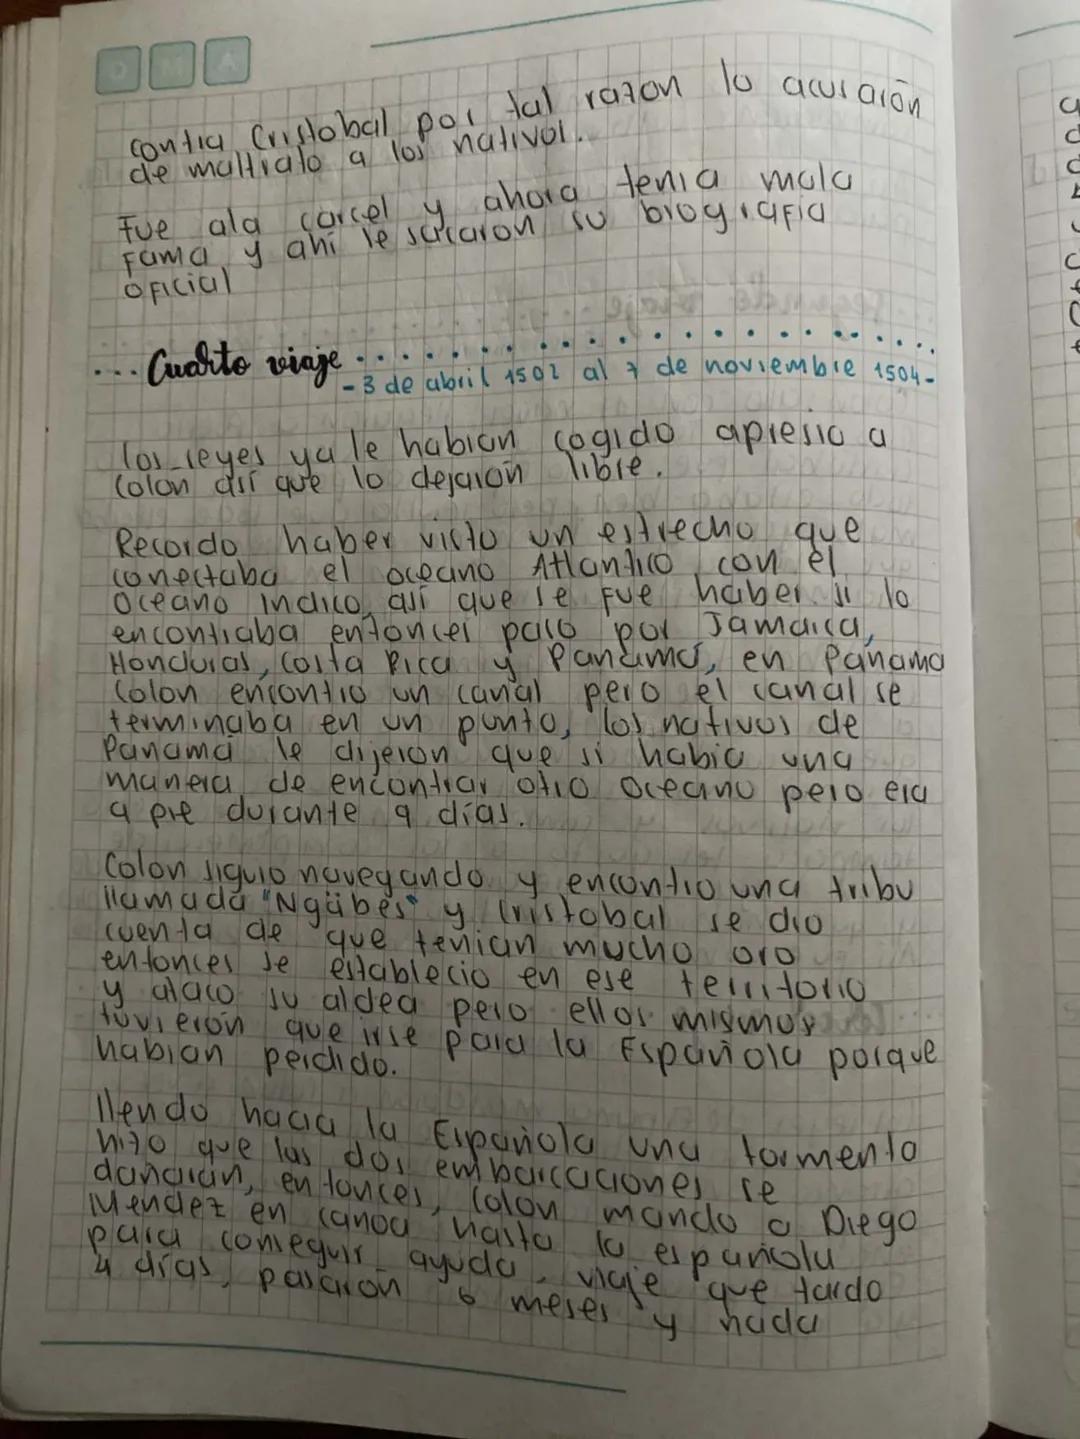 D M A
contra Cristobal por tal razon lo acusarón
de maltrato a los nativos.
Fue ala carcel y ahora tenia mala
fama y ahí le sacaron su biografia
oficial
... Cuarto viaje ...................
- 3 de abril 1502 al 7 de noviembre 1504-
los reyes ya le habian cogido apresio a
Colon así que lo dejarón libre.
Recordo haber visto un estrecho que
conectaba el oceano Atlantico con el
Oceano Indico, asi que se fue haber si lo
encontraba entonces paso por Jamaica,
Honduras, Costa Rica y Panamá, en Panama
Colon encontro un canal pero el canal se
terminaba en un punto, los nativos de
Panama le dijeron que si habia una
manera de encontrar otro Oceano pero era
a pie durante 9 días.
Colon siguio navegando y encontro una tribu
llamada "Ngäbes" y Cristobal se dio
cuenta de que tenian mucho oro
entonces se establecio en ese territorio
y ataco su aldea pero ellos mismos
tuvierón que irse para la Española porque
habian perdido.
llendo hacia la Española una tormenta
hizo que las dos embarcaciones se
dañarán, entonces, Colon mando a Diego
Mendez en canoa hasta la española
para conseguir ayuda, viaje que tardo
4 días, pasarón 6 meses y nada